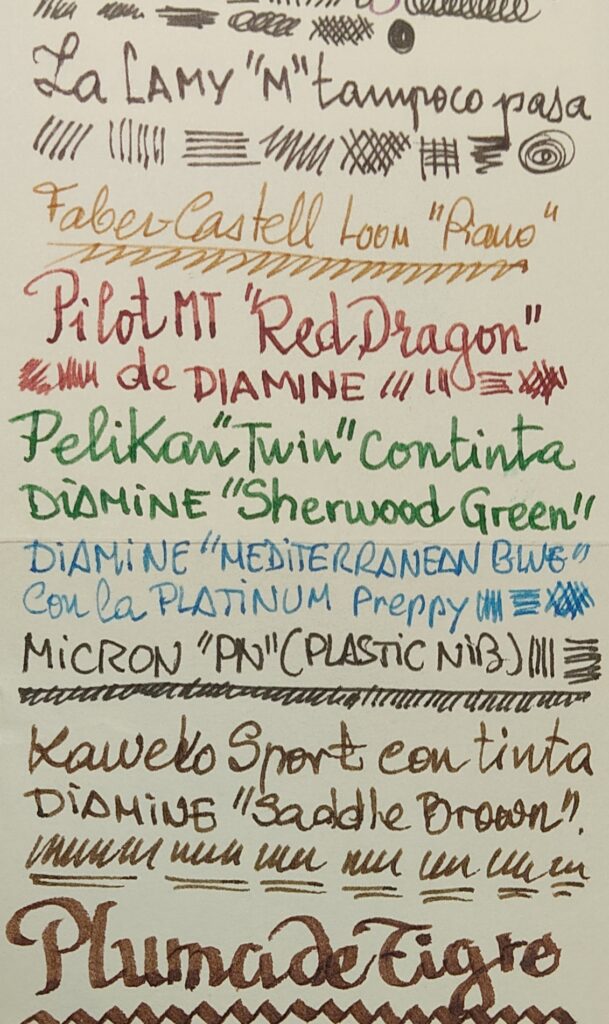 La LAMY "M" tampoco pasa
Faber-Castell Loom "Piano"
Pilot MT "Red Dragon"
de DIAMINE
Pelikan "Twin" con tinta
DIAMINE "Sherwood Green"
DIAMINE "MEDITERRANEAN BLUE"
Con la PLATINUM Preppy
MICRON "PN" (PLASTIC NIB)
Kaweko Sport con tinta
DIAMINE "Saddle Brown".
Pluma de Tigre